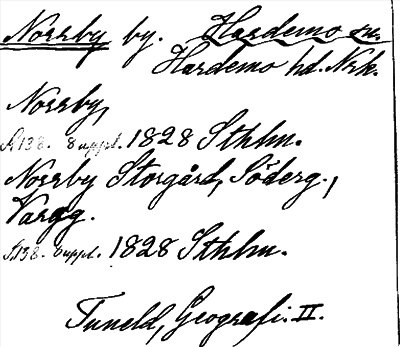 Norrby by. Hardemo sn.
Hardemo hd. Nrk.
Norrby,
S.138. 8 uppl. 1828 Sthlm.
Norrby Storgård, Söderg.,
Vargg.
S.138. 8 uppl. 1828 Sthlm.
Tuneld, Geografi. II.